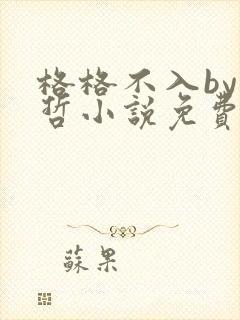 格格不入by
哲小説免費
蘇果